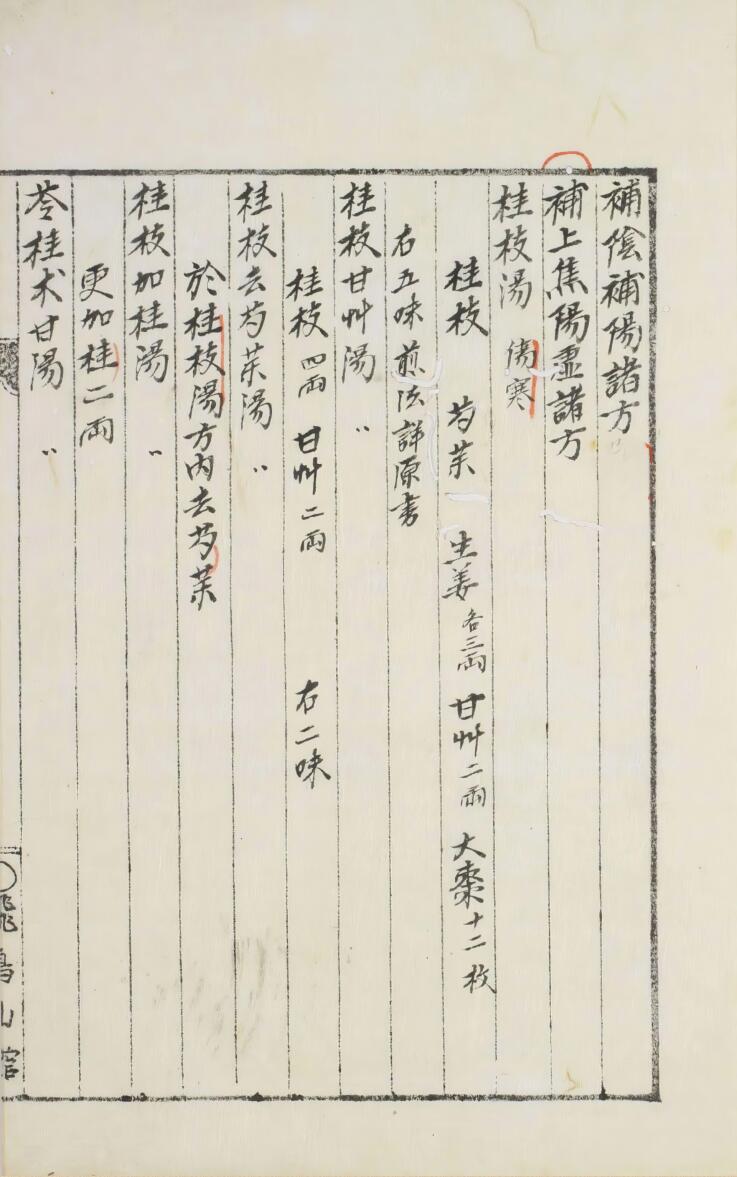 補陰補陽諸方
補上焦陽虛諸方
桂枝湯 傷寒
桂枝 芍茱 生姜各三兩 甘艸二兩 大棗十二枚
右五味煎法詳原書
桂枝甘艸湯 〃
桂枝四兩 甘艸二兩 右二味
桂枝去芍茱湯 〃
於桂枝湯方內去芍茱
桂枝加桂湯 〃
更加桂二兩
苓桂术甘湯 〃